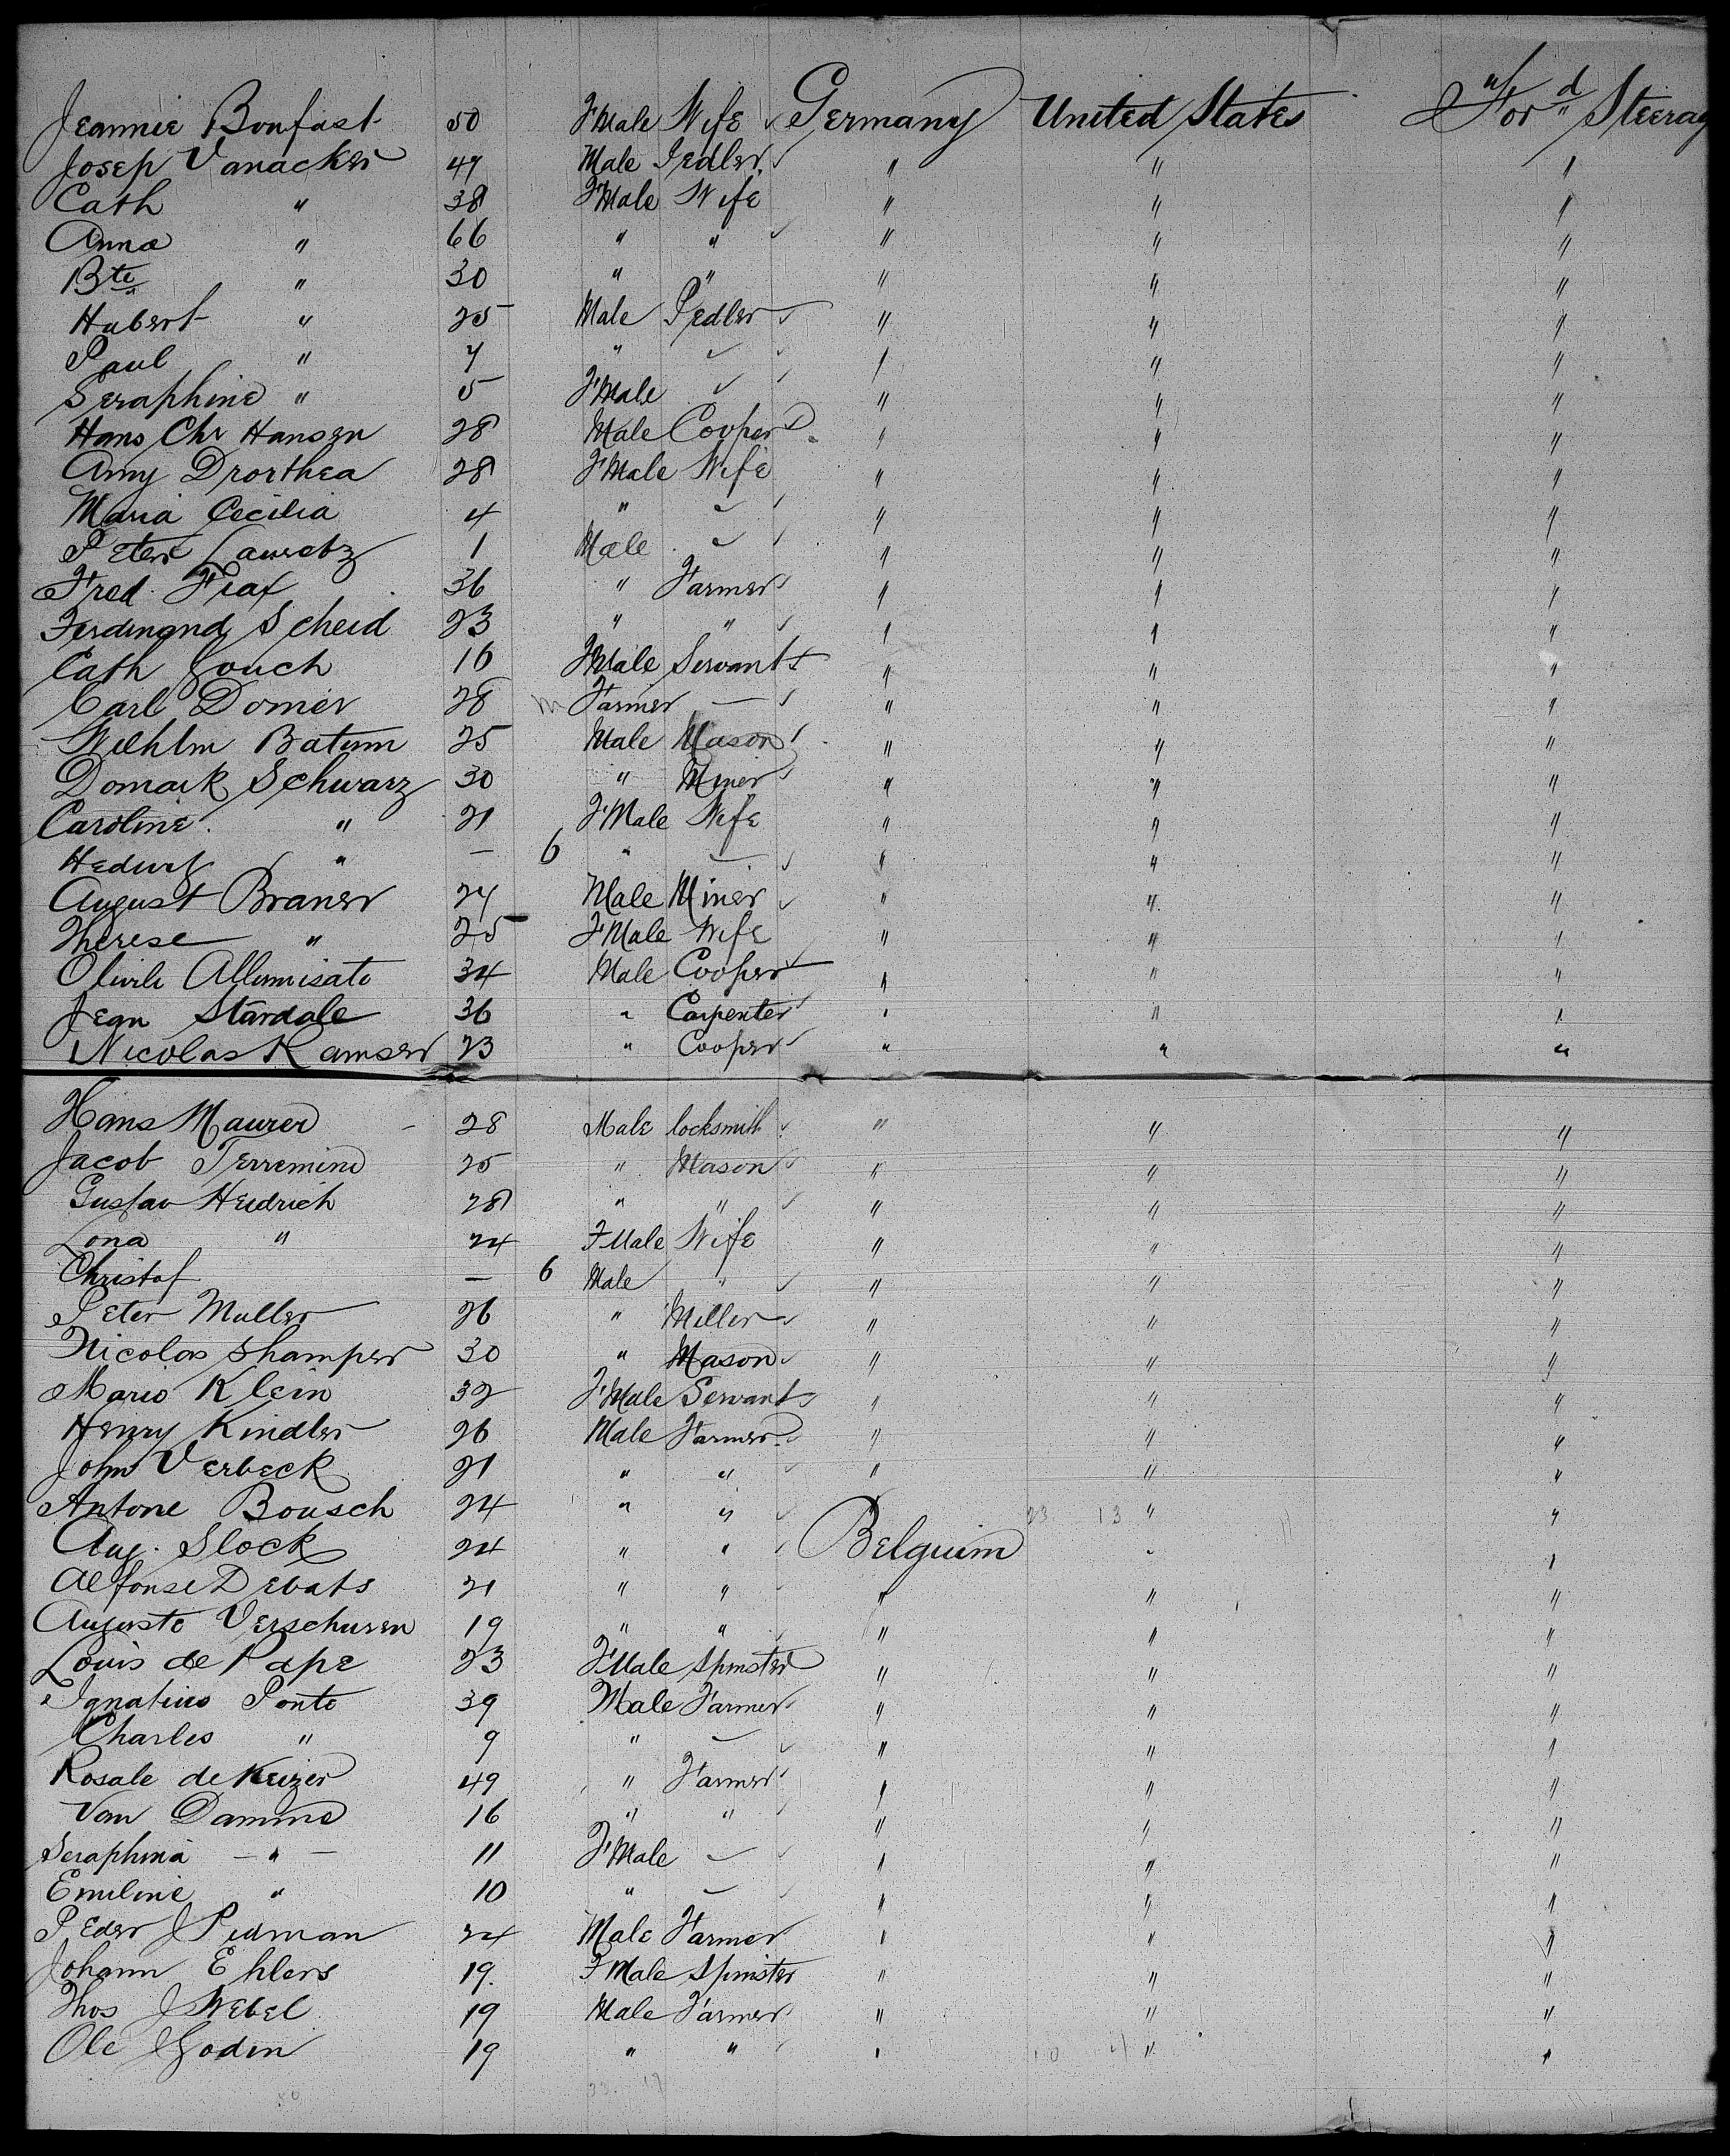 Jeannie Bonfast 50 F'Male Wife ✓ Germany United States "For'd" Steerag
Josep Vanacker 47 Male Pedler ✓ " " "
Cath " 38 F'Male Wife " " "
Anna " 66 " " ✓ " " "
Bte " 30 " " " " "
Hubert " 25 Male Pedler ✓ " " "
Paul " 7 " ✓ ✓ " " "
Seraphine " 5 F'Male ✓ ✓ " " "
Hans Chr Hansen 28 Male Cooper " " "
Amy Drorthea 28 F'Male Wife " " "
Maria Cecilia 4 " ✓ ✓ " " "
Peter Lauretz 1 Male ✓ ✓ " " "
Fred. Frax 36 " Farmer ✓ " " "
Ferdinand Scheid 23 " " ✓ " " "
Cath Jouch 16 F'Male Servant ✓ " " "
Carl Domer 28 m Farmer — ✓ " " "
Wilhlm Batum 25 Male Mason ✓ " " "
Domaik Schwarz 30 " Miner ✓ " " "
Caroline " 21 F'Male Wife " " "
Hedwig " — 6 " — ✓ " " "
August Braner 24 Male Miner ✓ " " "
Therese " 25 F'Male Wife " " "
34 Male Cooper ✓ " " "
Jean Stardale 36 " Carpenter ✓ " " "
Nicolas Ramser 23 " Cooper ✓ " " "
Hans Maurer 28 Male locksmith ✓ " " "
Jacob Terremind 25 " Mason ✓ " " "
Gustav Heidrich 28 " " ✓ " " "
Lona " 24 F'Male Wife " " "
Christof — 6 Male " ✓ " " "
Peter Muller 26 " Miller ✓ " " "
Nicolas Shamper 30 " Mason ✓ " " "
Mario Klein 32 F'Male Servant ✓ " " "
Henry Kindler 26 Male Farmer ✓ " " "
John Verbeck 21 " " ✓ " " "
Antone Bousch 24 " " ✓ 23 13 " "
Aug. Slock 24 " " ✓ Belguim " "
Alfonse Debats 21 " " ✓ " " "
Auguste Verschuren 19 " " ✓ " " "
Louis de Pape 23 F'Male Spinster " " "
Ignatius Ponte 39 Male Farmer ✓ " " "
Charles " 9 " — ✓ " " "
Rosale de Keizer 49 " Farmer ✓ " " "
Van Damme 16 " " ✓ " " "
Seraphina — " — 11 F'Male — ✓ " " "
Emeline " 10 " — ✓ " " "
Peder J Pedman 24 Male Farmer " " "
Johann Ehlers 19. F'Male Spinster " " "
Thos J Webel 19 Male Farmer " " "
Ole Godin 19 " " ✓ " 10 4 " "